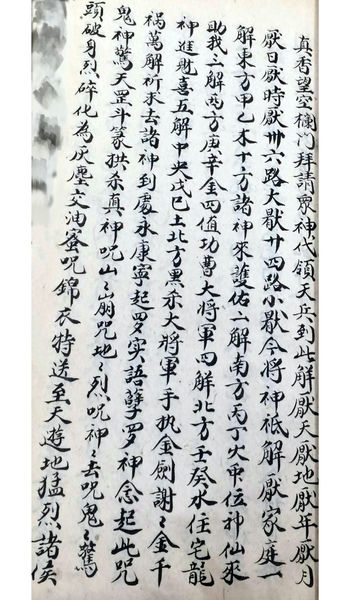 真香望空欄門拜請眾神代領天兵到此解厭天厭地厭年厭月
厭日厭時厭卅六路大厭廿四路小厭今將神祗解厭家庭一
解東方甲乙木十方諸神來護佑二解南方丙丁火甲位神仙來
助我三解西方庚辛金四值功曹大將軍四解北方壬癸水住宅龍
神進財喜五解中央戊巳土北方黑杀大將軍手执金劍謝〻金千
禍萬解祈求去諸神到處永康寧起罗实語孽罗神念起此咒
鬼神驚天罡斗篆拱杀真神咒山〻崩咒地〻烈咒神〻去咒鬼〻驚
頭破身烈碎化為灰塵交油蜜呪錦衣特送至天遊地猛烈諸侯